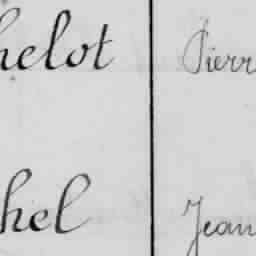 helot Pierr
hel Jean